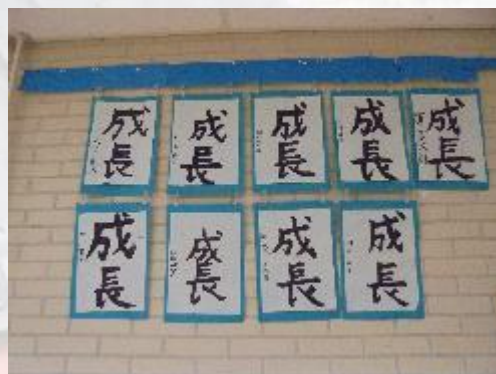 成長
成長
成長
成長
成長
成長
成長
成長
成長